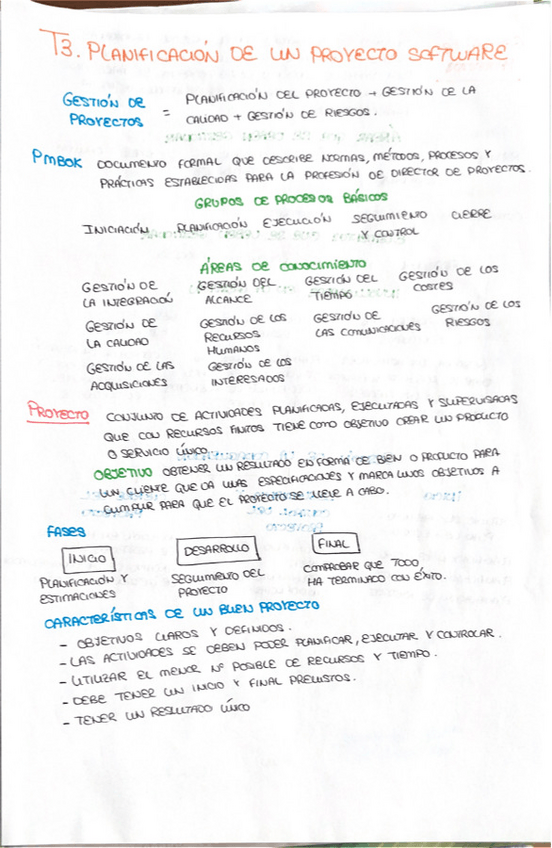 T3. PLANIFICACIÓN DE UN PROYECTO SOFTWARE
GESTIÓN DE PROYECTOS = PLANIFICACIÓN DEL PROYECTO + GESTIÓN DE LA
CALIDAD + GESTIÓN DE RIESGOS.
PMBOK DOCUMENTO FORMAL QUE DESCRIBE NORMAS, MÉTODOS, PROCESOS Y
PRÁCTICAS ESTABLECIDAS PARA LA PROFESIÓN DE DIRECTOR DE PROYECTOS.
GRUPOS DE PROCESOS BÁSICOS
INICIACIÓN PLANIFICACIÓN EJECUCIÓN SEGUIMIENTO CIERRE
Y CONTROL
ÁREAS DE CONOCIMIENTO
GESTIÓN DE GESTIÓN DEL GESTIÓN DEL GESTIÓN DE LOS
LA INTEGRACIÓN ALCANCE TIEMPO COSTES
GESTIÓN DE GESTIÓN DE LOS GESTIÓN DE GESTIÓN DE LOS
LA CALIDAD RECURSOS LAS COMUNICACIONES RIESGOS
HUMANOS
GESTIÓN DE LAS GESTIÓN DE LOS
ADQUISICIONES INTERESADOS
PROYECTO CONJUNTO DE ACTIVIDADES PLANIFICADAS, EJECUTADAS Y SUPERVISADAS
QUE CON RECURSOS FINITOS TIENE COMO OBJETIVO CREAR UN PRODUCTO
O SERVICIO ÚNICO.
OBJETIVO OBTENER UN RESULTADO EN FORMA DE BIEN O PRODUCTO PARA
UN CLIENTE QUE DA UNAS ESPECIFICACIONES Y MARCA UNOS OBJETIVOS A
CUMPLIR PARA QUE EL PROYECTO SE LLEVE A CABO.
FASES
INICIO DESARROLLO FINAL
PLANIFICACIÓN Y SEGUIMIENTO DEL COMPROBAR QUE TODO
ESTIMACIONES PROYECTO HA TERMINADO CON ÉXITO.
CARACTERÍSTICAS DE UN BUEN PROYECTO
- OBJETIVOS CLAROS Y DEFINIDOS.
- LAS ACTIVIDADES SE DEBEN PODER PLANIFICAR, EJECUTAR Y CONTROLAR.
- UTILIZAR EL MENOR Nº POSIBLE DE RECURSOS Y TIEMPO.
- DEBE TENER UN INICIO Y FINAL PREVISTOS.
- TENER UN RESULTADO ÚNICO